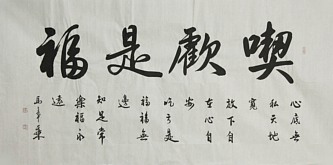 喫歡是福
心底無
私天地
寬
放下自
在心自
安
吃亏是
福福無
邊
知足常
樂福永
遠